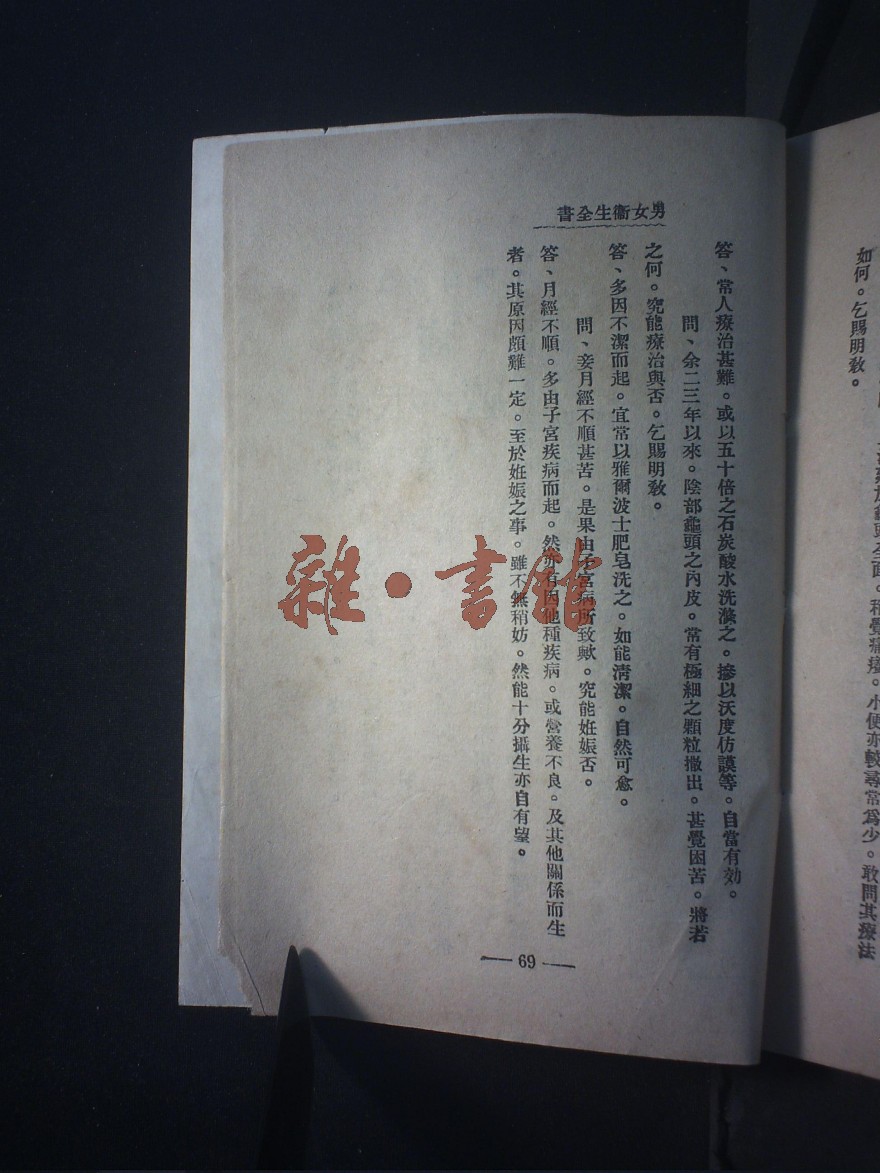 如何。乞賜明教。
面。稍覺痛癢。小便亦較尋常爲少。敢問其療法
男女衞生全書
答、常人療治甚難。或以五十倍之石炭酸水洗滌之。摻以沃度仿謨等。自當有効。
問、余二三年以來。陰部龜頭之內皮。常有極細之顆粒撒出。甚覺困苦。將若
之何。究能療治與否。乞賜明敎。
答、多因不潔而起。宜常以雅爾波士肥皂洗之。如能淸潔。自然可愈。
問、妾月經不順甚苦。是果由子宮病所致歟。究能姙娠否。
答、月經不順。多由子宮疾病而起。然亦有因他種疾病。或營養不良。及其他關係而生
者。其原因頗難一定。至於姙娠之事。雖不無稍妨。然能十分攝生亦自有望。
— 69 —
雜·書館